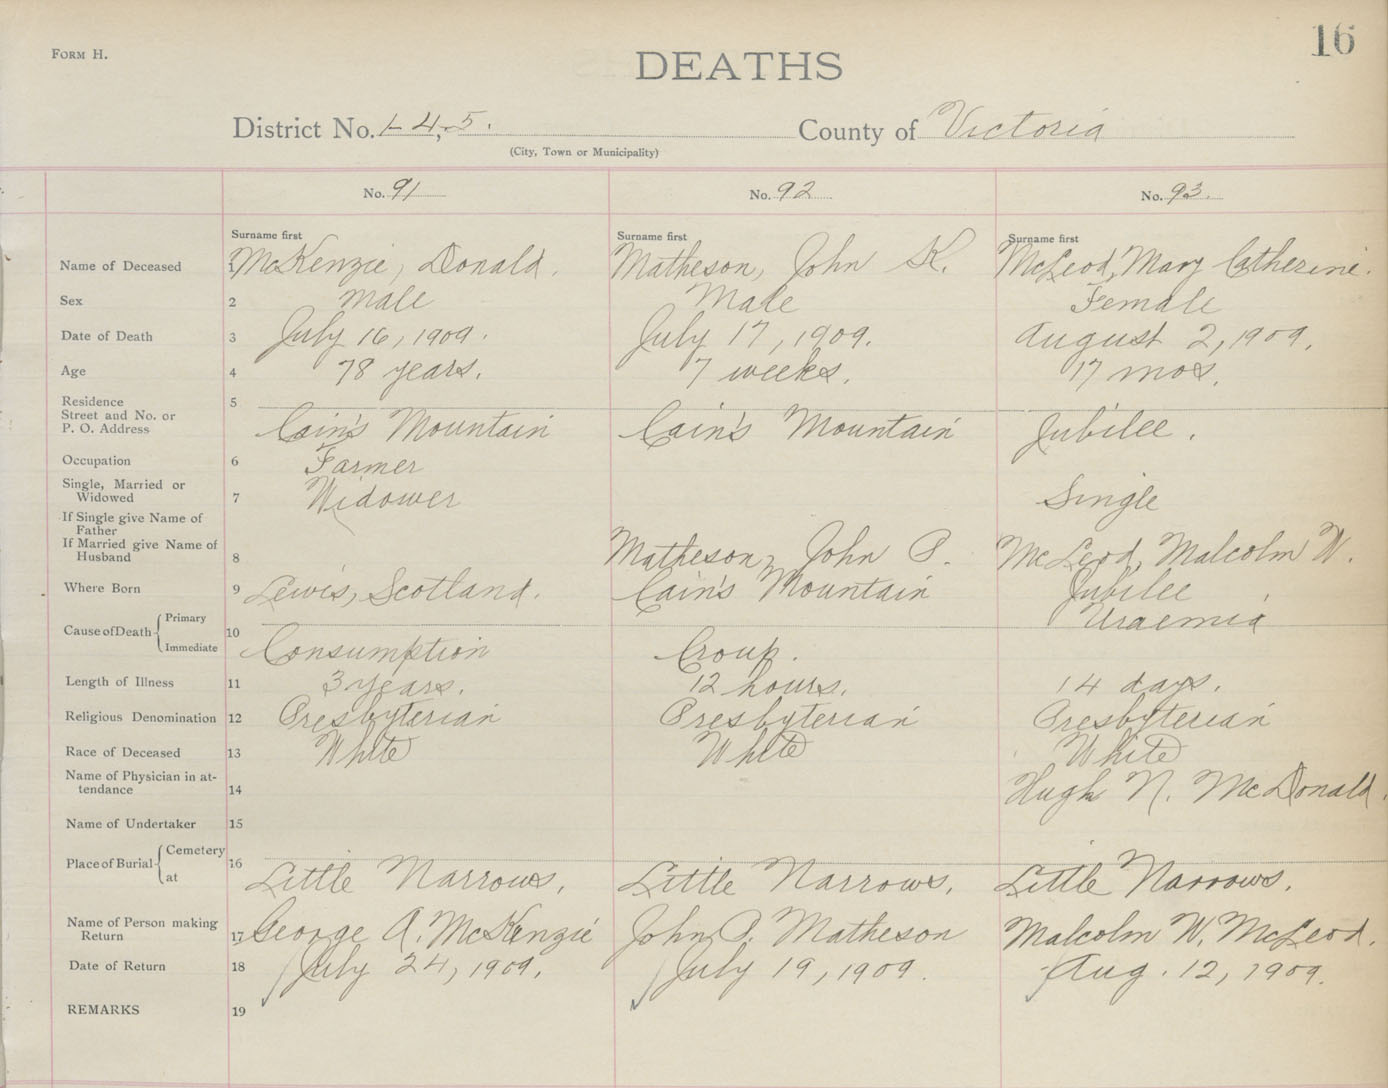 16
Form H.
DEATHS
District No. 1-4,-5. County of Victoria
(City, Town or Municipality)
No. 91 No. 92 No. 93.
Surname first Surname first Surname first
Name of Deceased 1 McKenzie, Donald. Matheson, John K. McLeod, Mary Catherine.
Sex 2 Male Male Female
Date of Death 3 July 16, 1909. July 17, 1909. August 2, 1909.
Age 4 78 years. 7 weeks. 17 mos.
Residence 5
Street and No. or
P. O. Address Cain's Mountain Cain's Mountain Jubilee.
Occupation 6 Farmer
Single, Married or
Widowed 7 Widower Single
If Single give Name of
Father
If Married give Name of
Husband 8 Matheson, John P. McLeod, Malcolm W.
Where Born 9 Lewis, Scotland. Cain's Mountain Jubilee
Cause of Death Primary 10 Uraemia
Immediate Consumption Croup.
Length of Illness 11 3 years. 12 hours. 14 days.
Religious Denomination 12 Presbyterian Presbyterian Presbyterian
Race of Deceased 13 White White White
Name of Physician in at-
tendance 14 Hugh N. McDonald.
Name of Undertaker 15
Place of Burial Cemetery 16
at Little Narrows. Little Narrows. Little Narrows.
Name of Person making
Return 17 George A. McKenzie John P. Matheson Malcolm W. McLeod.
Date of Return 18 July 24, 1909. July 19, 1909. Aug. 12, 1909.
REMARKS 19